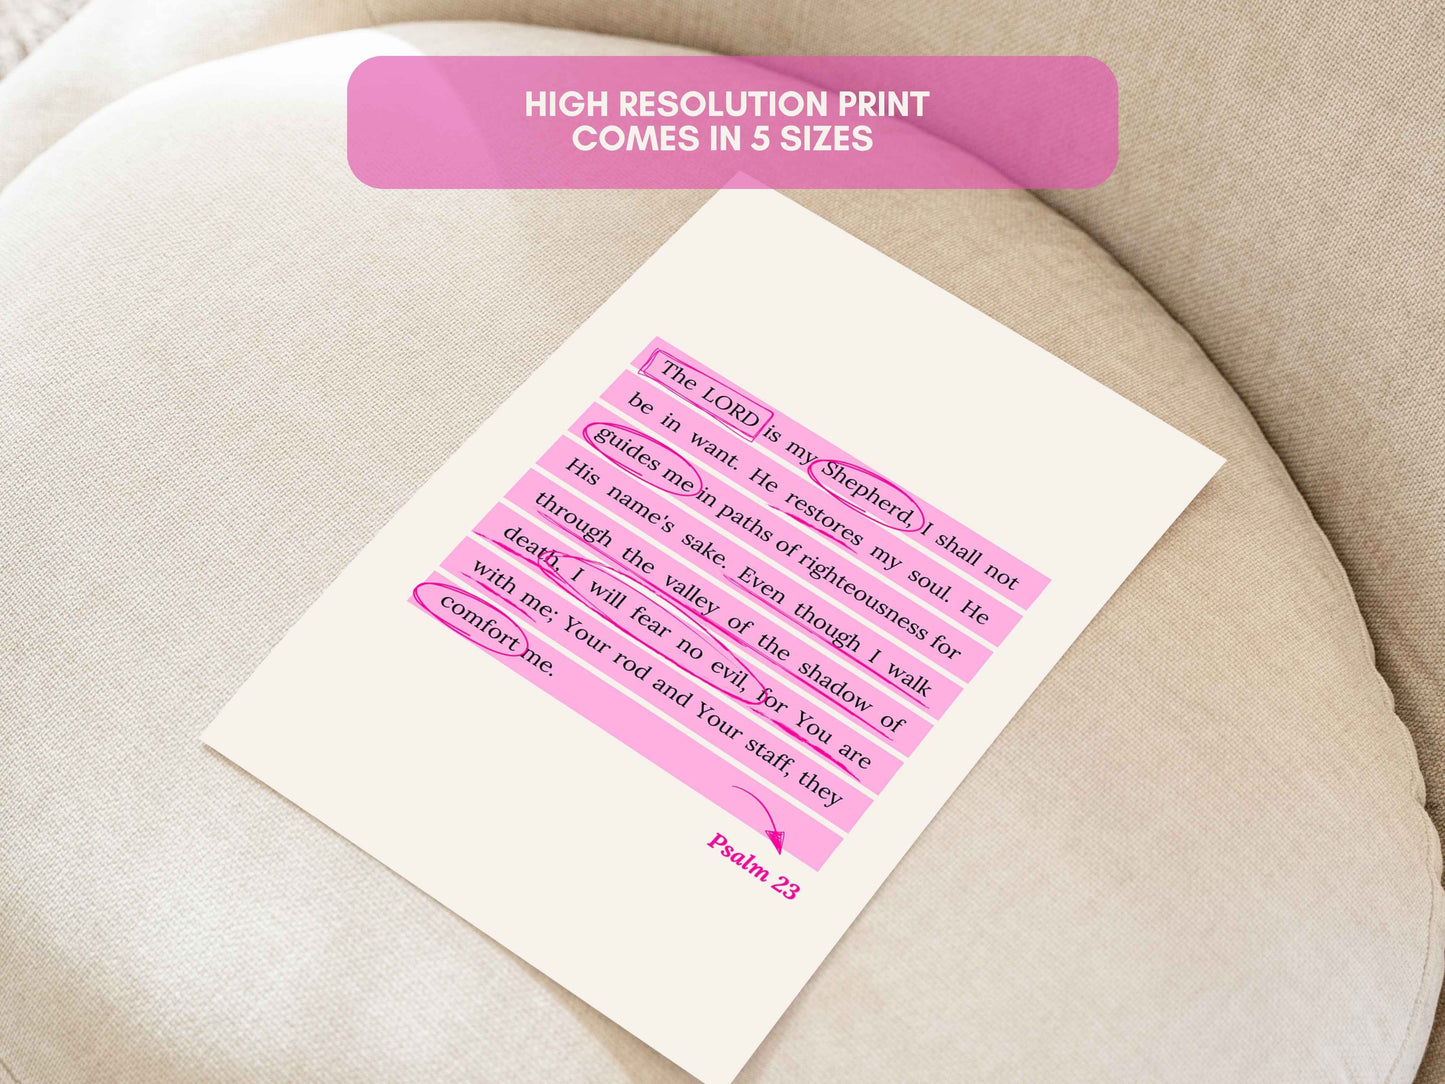 HIGH RESOLUTION PRINT
COMES IN 5 SIZES
The LORD is my Shepherd, I shall not
be in want. He restores my soul. He
guides me in paths of righteousness for
His name's sake. Even though I walk
through the valley of the shadow of
death, I will fear no evil, for You are
with me; Your rod and Your staff, they
comfort me.
Psalm 23